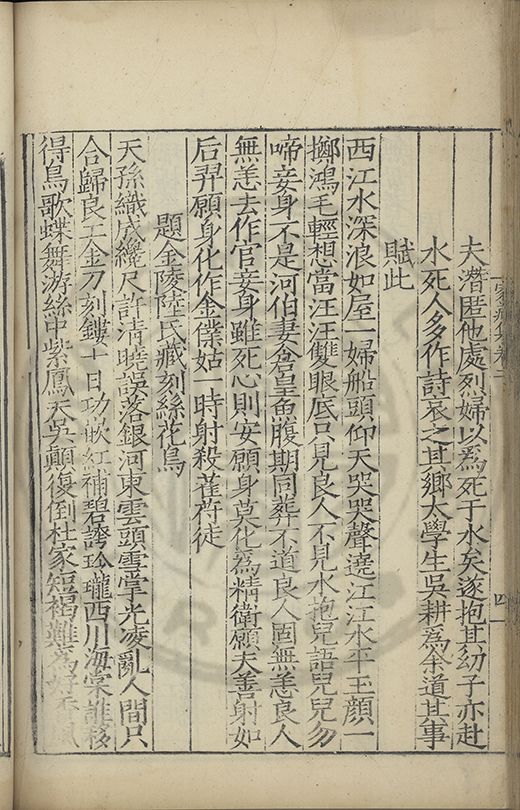 夫潛匿他處烈婦以爲死于水矣遂抱其幼子亦赴
水死人多作詩哀之其鄉太學生吳耕爲余道其事
賦此
西江水深浪如屋一婦船頭仰天哭哭聲遶江江水平玉顏一
擲鴻毛輕想當汪汪雙眼底只見良人不見水抱兒語兒兒勿
啼妾身不是河伯妻倉皇魚腹期同葬不道良人固無恙良人
無恙去作官妾身雖死心則安願身莫化爲精衛願夫善射如
后羿願身化作金僕姑一時射殺萑苻徒
題金陵陸氏藏刻絲花鳥
天孫織成纔尺許清曉誤落銀河東雲頭雪掌光凌亂人間只
合歸良工金刀刻鏤十日功嵌紅補碧誇玲瓏西川海棠誰移
得鳥歌蝶舞游絲中紫鳳天吳顛復倒杜家短褐難爲好香風
四